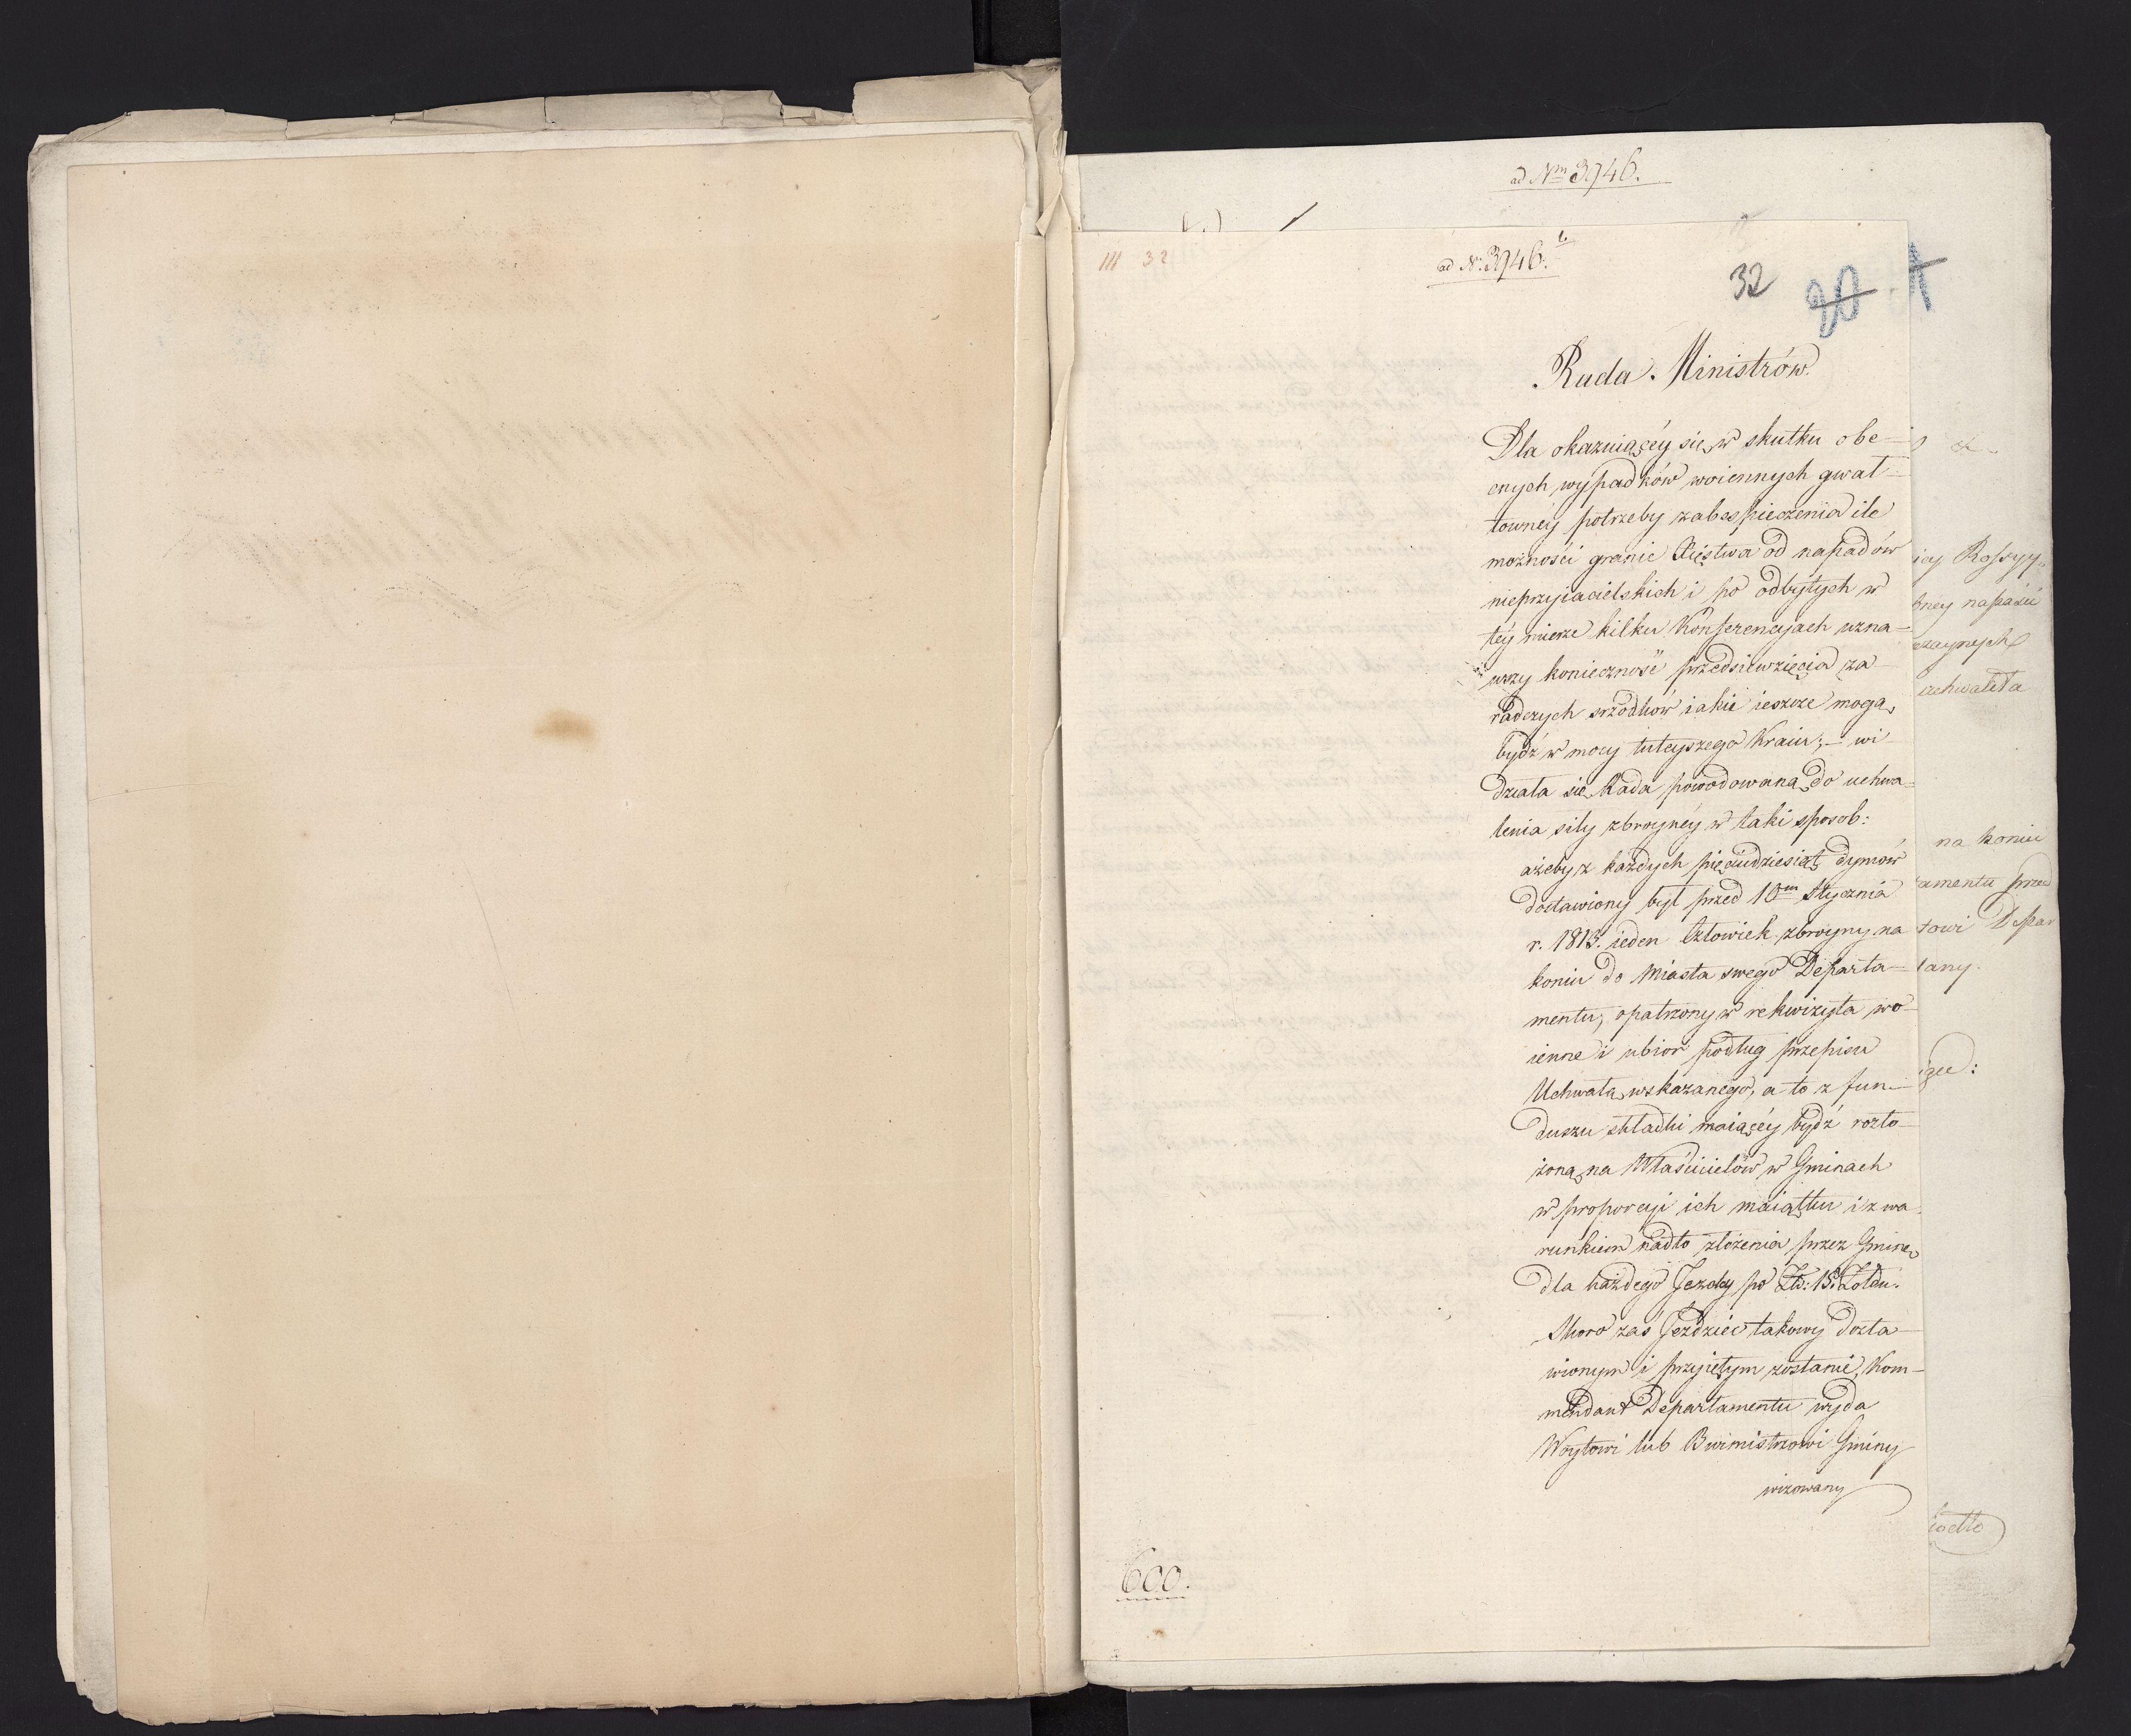 ad Nrm 3946.
III 32
ad N. 3946.
32
20
1
Rada Ministrów.
Dla okazuiącéy się w skutku obe-
cnych wypadków woiennych gwał-
townéy potrzeby zabespieczenia ile
możności granic Xięstwa od napadów
nieprzyiacielskich i po odbytych w
téy mierze kilku Konferencyach uzna-
wszy konieczność przedsiewzięcia za-
radczych srzodków iakie ieszcze mogą
bydź w mocy tuteyszego Kraiu; – wi-
działa się Rada powodowaną do uchwa-
lenia siły zbroynéy w taki sposob:
ażeby z każdych pięciudziesiąt dymów
dostawiony był przed 10m Stycznia
r. 1813. ieden Człowiek zbroyny na
koniu do Miasta swego Departa-
mentu, opatrzony w rekwizyta wo-
ienne i ubior podług przepisu
Uchwałą wskazanego, a to z fun-
duszu składki maiącéy bydź rozło-
żoną na Właścicielów w Gminach
w proporcyi ich maiątku i z wa-
runkiem nadto złożenia przez Gminę
dla każdego Jezdcy po Zł: 15. Żołdu.
Skoro zaś Jezdziec takowy dosta-
wionym i przyiętym zostanie, Kom-
mendant Departamentu wyda
Woytowi lub Burmistrzowi Gminy
wizowany
600.
icy Rossyy-
bney napaści
uchwaliła
na koniu
tamentu przed
towi Depar
tany.